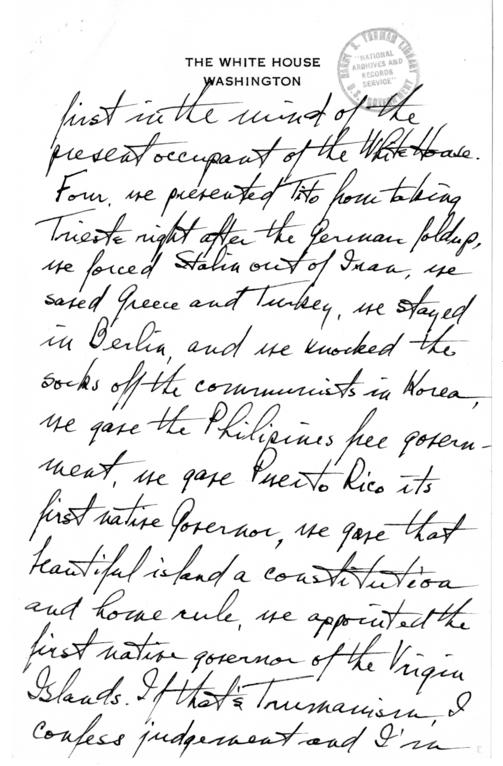 THE WHITE HOUSE
WASHINGTON
HARRY S. TRUMAN LIBRARY
"NATIONAL
ARCHIVES AND
RECORDS
SERVICE"
U.S. GOVERNMENT
first in the mind of the
present occupant of the White House.
Four, we prevented Tito from taking
Trieste right after the German foldup,
we forced Stalin out of Iran, we
saved Greece and Turkey, we stayed
in Berlin, and we knocked the
socks off the communists in Korea,
we gave the Philipines free govern-
ment, we gave Puerto Rico its
first native Governor, we gave that
beautiful island a constitution
and home rule, we appointed the
first native governor of the Virgin
Islands. If that's Trumanism, I
confess judgement and I'm